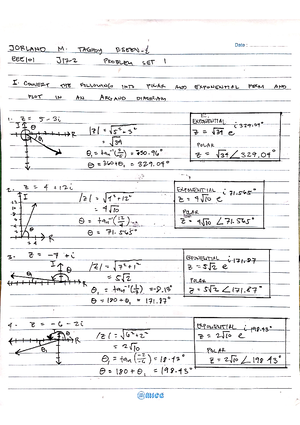 JORLAND M. TAGHOY BSEEN-E
Date:
EEE101 J17-2 PROBLEM SET 1
I. CONVERT THE FOLLOWING INTO POLAR AND EXPONENTIAL FORM AND
PLOT IN AN ARGAND DIAGRAM
1. z = 5 - 3i
|z| = √5² + 3²
= √34
θ = 360 + θ₁ = 329.04°
EXPONENTIAL
z = √34 e^i 329.04°
POLAR
z = √34 ∠329.04°
2. z = 4 + 12i
|z| = √4² + 12²
= 4√10
θ = tan⁻¹(12/4)
θ = 71.565°
EXPONENTIAL
z = 4√10 e^i 71.565°
POLAR
z = 4√10 ∠71.565°
3. z = -7 + i
|z| = √7² + 1²
= 5√2
θ₁ = tan⁻¹(1/-7) = -8.13°
θ = 180 + θ₁ = 171.87°
EXPONENTIAL
z = 5√2 e^i 171.87°
POLAR
z = 5√2 ∠171.87°
4. z = -6 - 2i
|z| = √6² + 2²
= 2√10
θ₁ = tan⁻¹(-2/-6) = 18.43°
θ = 180 + θ₁ = 198.43°
EXPONENTIAL
z = 2√10 e^i 198.43°
POLAR
z = 2√10 ∠198.43°